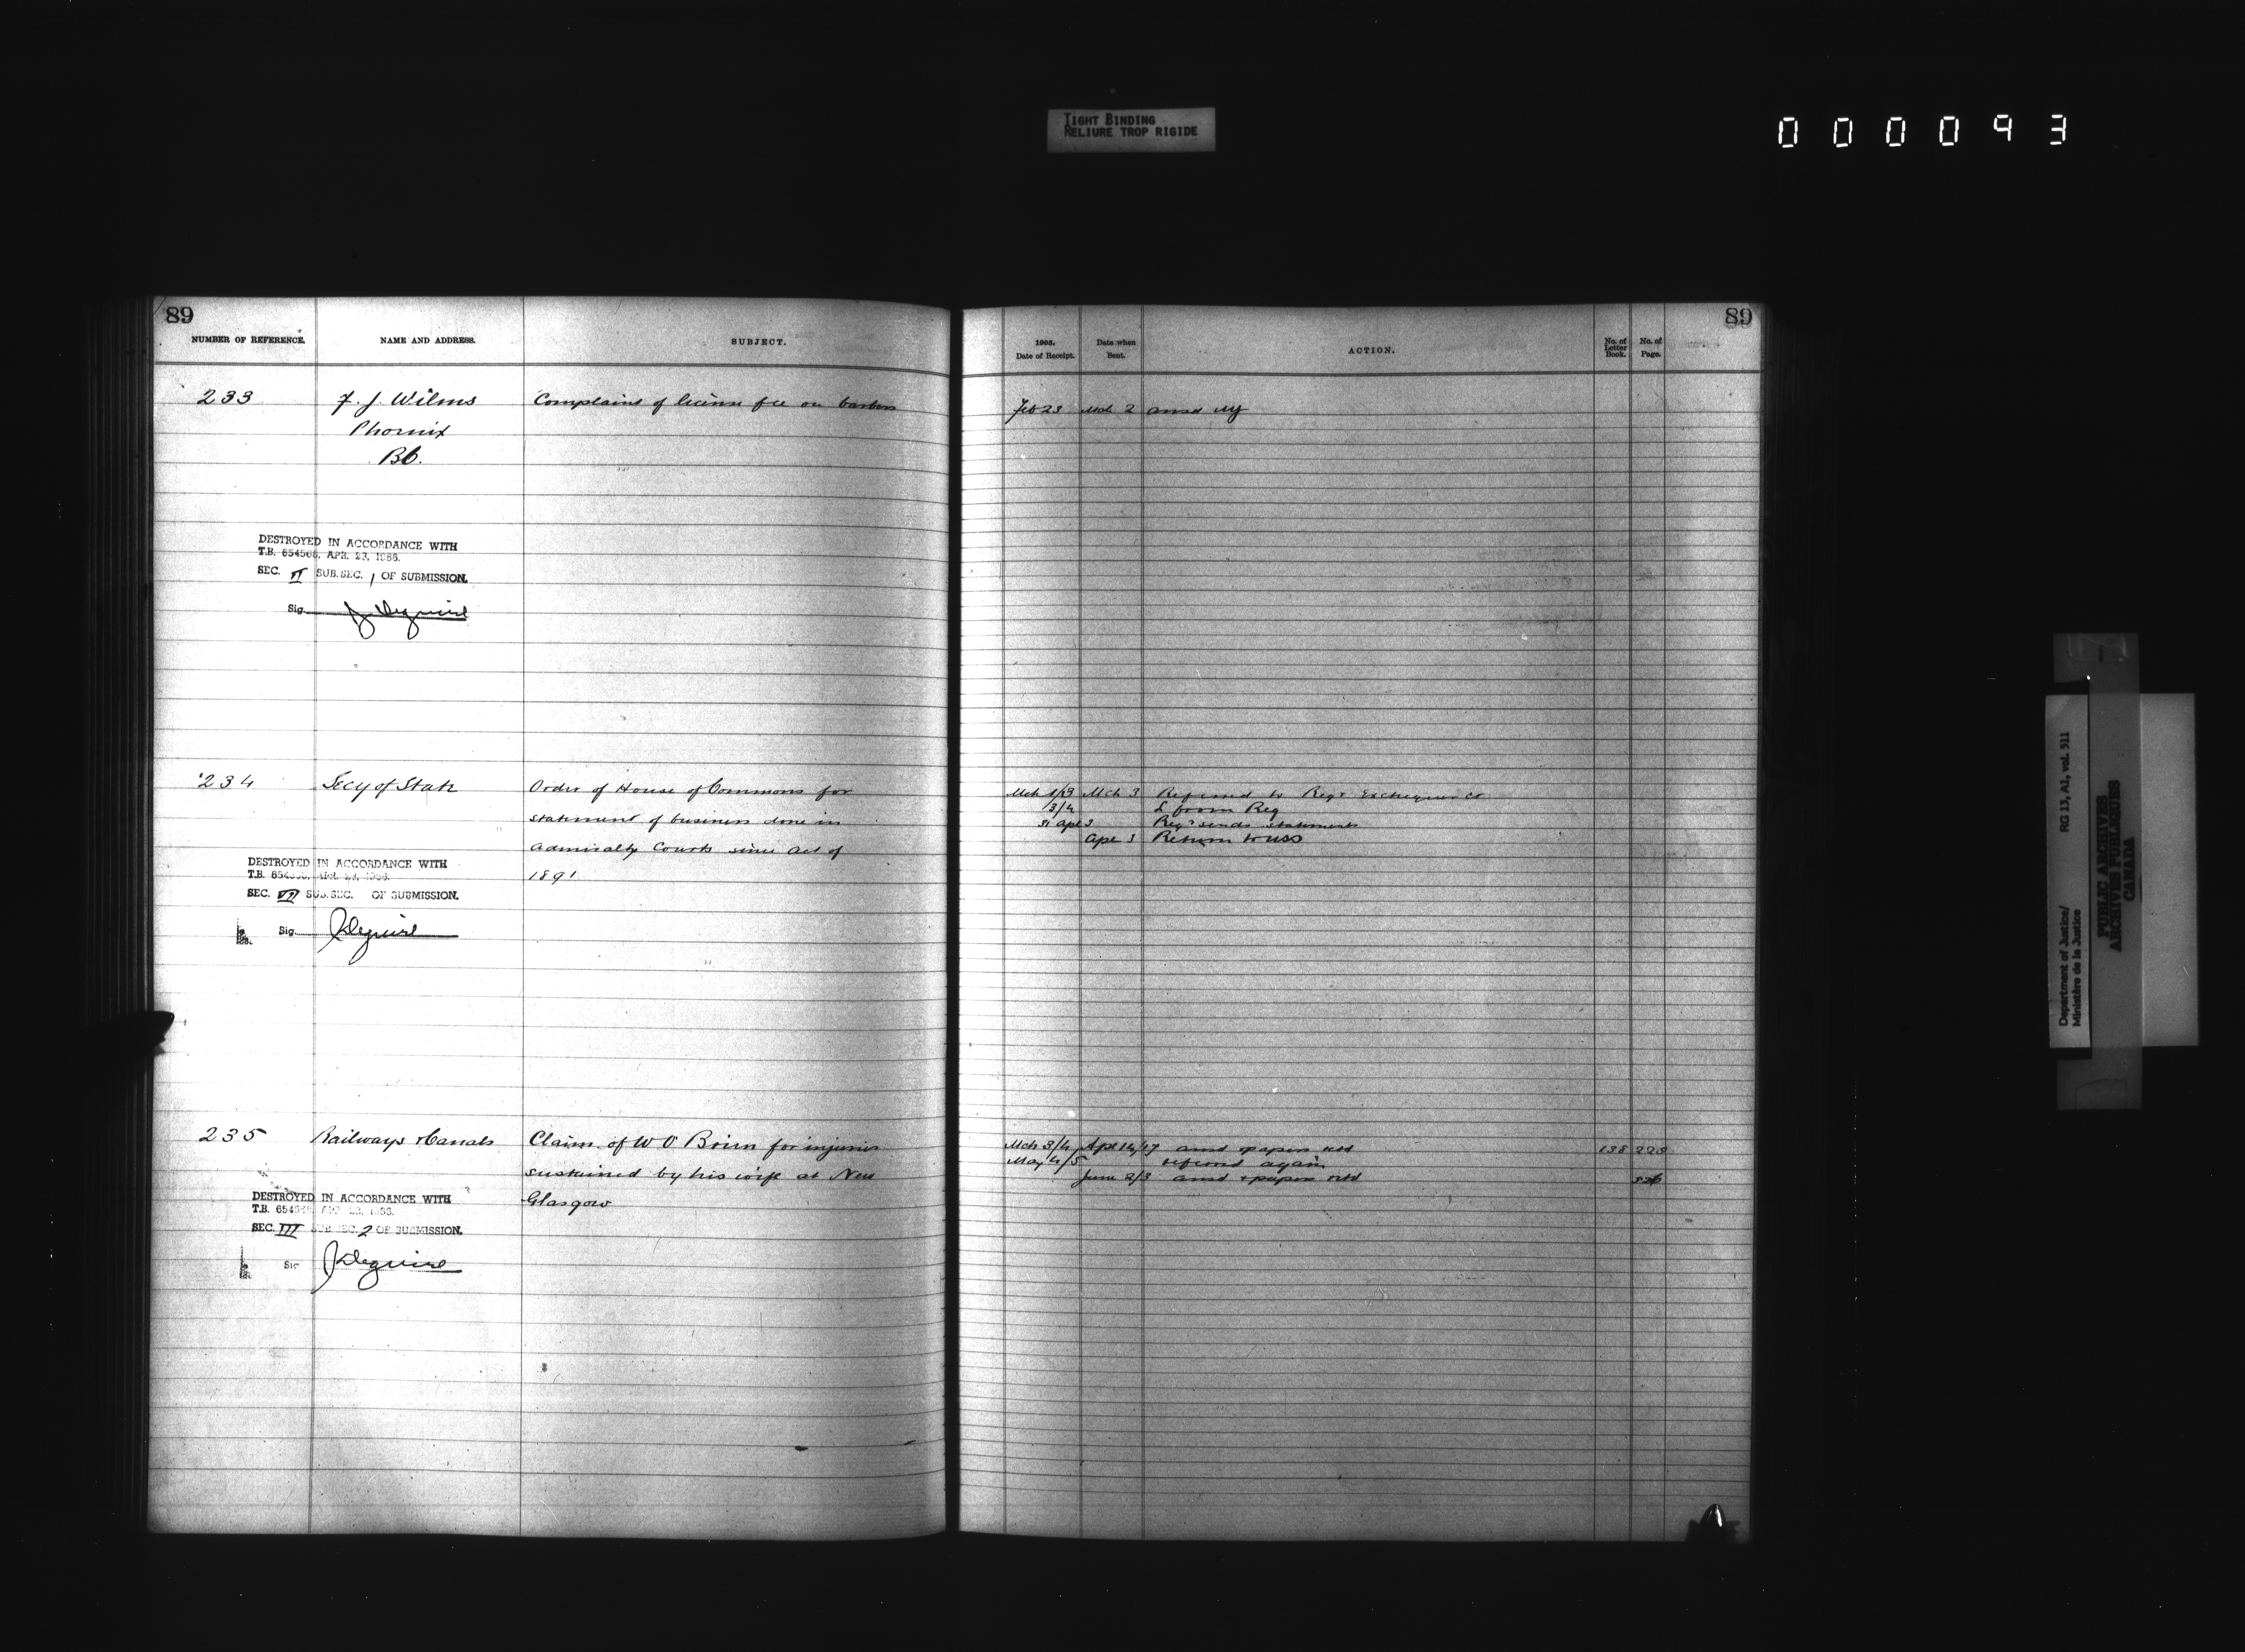 TIGHT BINDING
RELIURE TROP RIGIDE
000093
89
NUMBER OF REFERENCE.
NAME AND ADDRESS.
SUBJECT.
233
F. J. Wilms
Phoenix
BC.
Complaint of license fee on barbers
DESTROYED IN ACCORDANCE WITH
T.B. 654568, APR. 23, 1966.
SEC. VI SUB.SEC. 1 OF SUBMISSION.
Sig. J Deguire
234
Secy of State
Order of House of Commons for
statement of business done in
Admiralty Courts since Act of
1891
DESTROYED IN ACCORDANCE WITH
T.B.
SEC. VI SUB.SEC. OF SUBMISSION.
Sig. J Deguire
235
Railways & Canals
Claim of W O'Brien for injuries
sustained by his wife at New
Glasgow
DESTROYED IN ACCORDANCE WITH
T.B.
SEC. III SUB.SEC. 2 OF SUBMISSION.
Sig J Deguire
89
1905.
Date of Receipt.
Date when
Sent.
ACTION.
No. of
Letter
Book.
No. of
Page.
Feb 23 Mch 2 ansd
Mch 1/3 Mch 3 Referred to Regr Exchequer Ct
3/4 L from Reg
31 Apl 3 Regr sends statements
Apl 3 Return to USS
Mch 3/4 Apl 14/17 ansd & papers retd 138 228
May 4/5 referred again
June 2/3 ansd & papers retd 526
Department of Justice/
Ministère de la Justice
RG 13, A1, vol. 511
PUBLIC ARCHIVES
ARCHIVES PUBLIQUES
CANADA